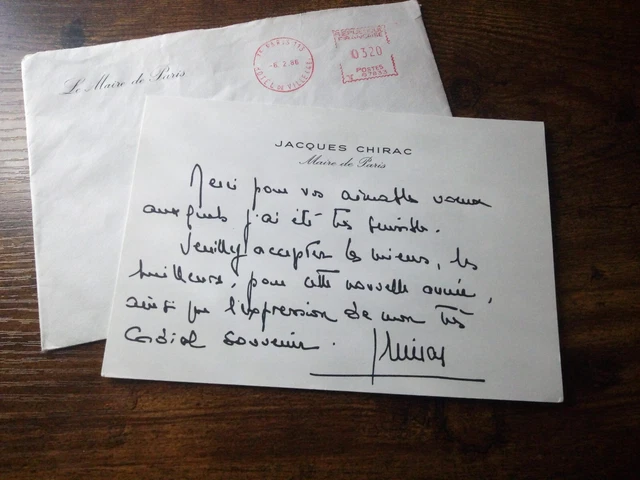 Le Maire de Paris
PARIS 113
-6.2.86
HOTEL DE VILLE (4e)
REPUBLIQUE
FRANÇAISE
0320
POSTES
JACQUES CHIRAC
Maire de Paris
Merci pour vos aimables voeux
auxquels j'ai été très sensible.
Veuillez accepter les miens, les
meilleurs, pour cette nouvelle année,
ainsi que l'expression de mon très
Cordial souvenir.
JChirac